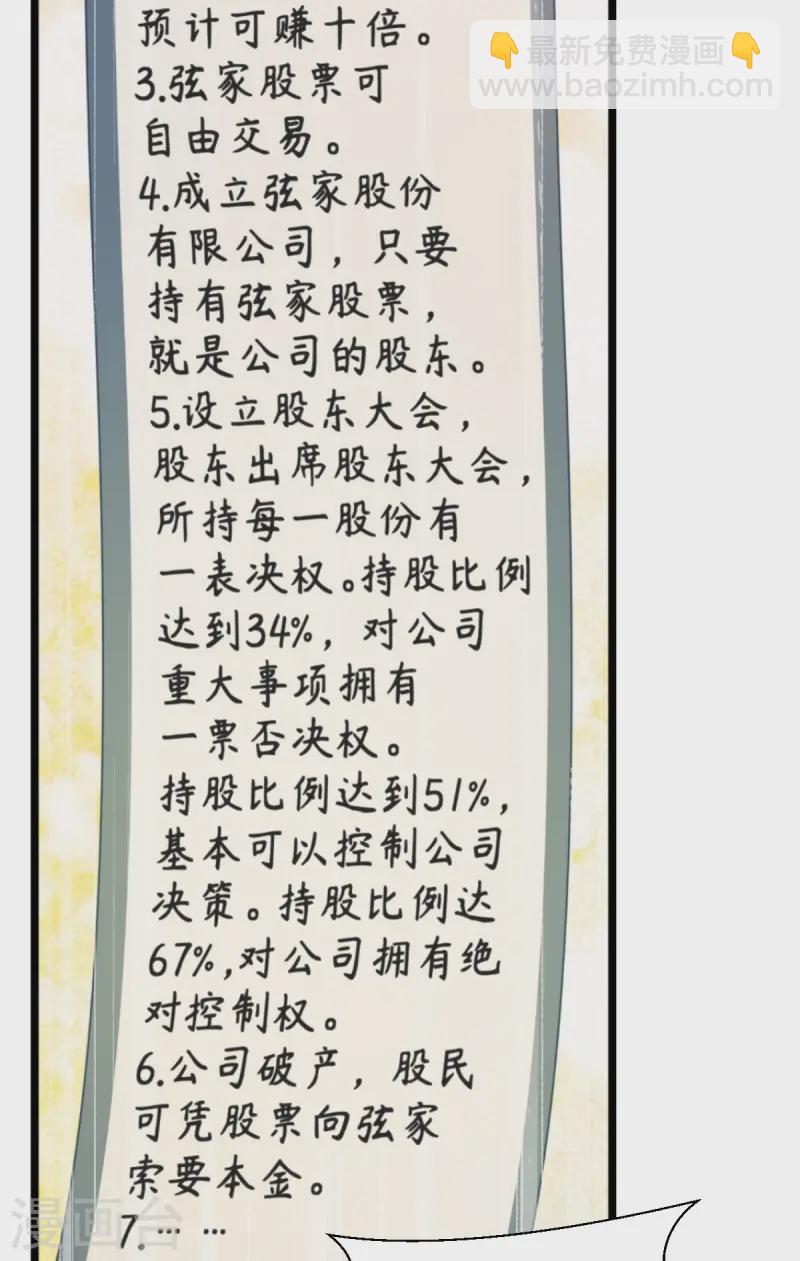 预计可赚十倍。
👇最新免费漫画👇
www.baozimh.com
3.弦家股票可
自由交易。
4.成立弦家股份
有限公司，只要
持有弦家股票，
就是公司的股东。
5.设立股东大会，
股东出席股东大会，
所持每一股份有
一表决权。持股比例
达到34%，对公司
重大事项拥有
一票否决权。
持股比例达到51%，
基本可以控制公司
决策。持股比例达
67%，对公司拥有绝
对控制权。
6.公司破产，股民
可凭股票向弦家
索要本金。
7.… …
漫画台